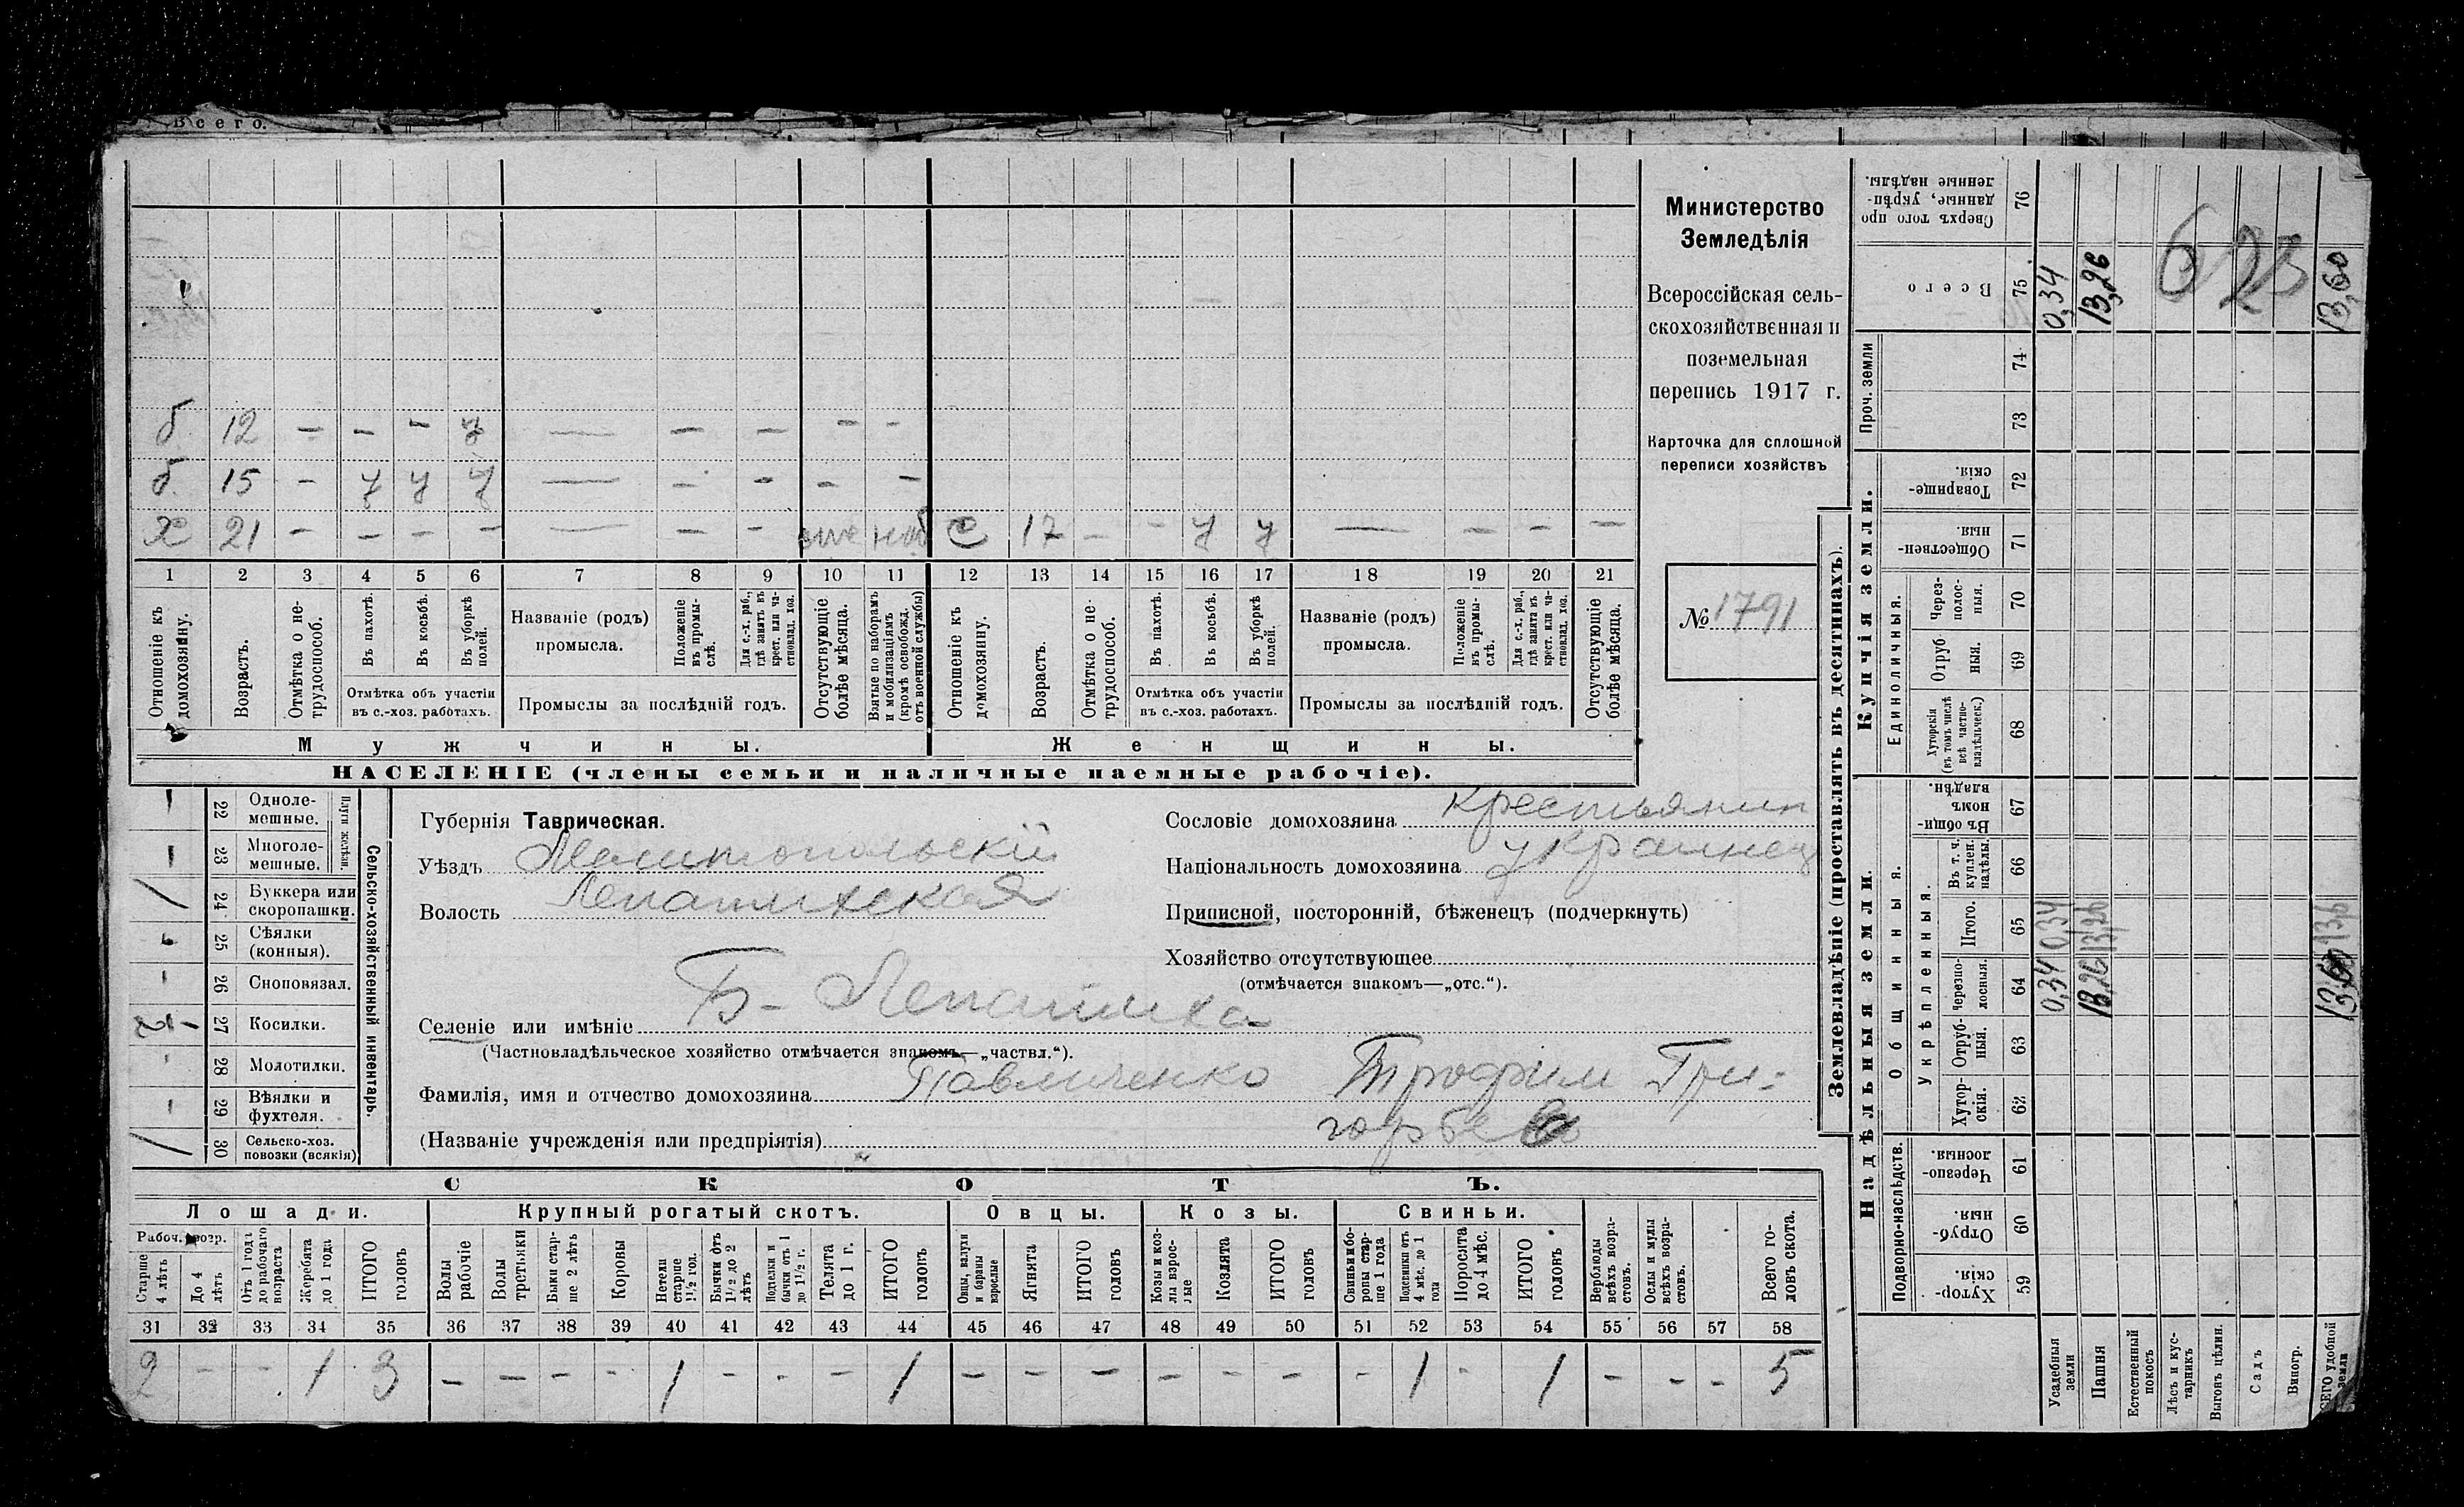 Всего.
б. 12 — — — у — — — — —
б. 15 — у у у — — — — —
х 21 — — — — — — — наб с 17 — — у у — — — —
1 2 3 4 5 6 7 8 9 10 11 12 13 14 15 16 17 18 19 20 21
Отношеніе къ домохозяину.
Возрастъ.
Отмѣтка о не-
трудоспособ.
Въ пахотѣ.
Въ косьбѣ.
Въ уборкѣ
полей.
Отмѣтка объ участіи
въ с.-хоз. работахъ.
Названіе (родъ)
промысла.
Положеніе
въ промы-
слѣ.
Для с.-х. раб.,
гдѣ занятъ въ
крест. или ча-
стновлад. хоз.
Промыслы за послѣдній годъ.
Отсутствующіе
болѣе мѣсяца.
Взятые по наборамъ
и мобилизаціямъ
(кромѣ освобожд.
отъ военной службы)
Отношеніе къ
домохозяину.
Возрастъ.
Отмѣтка о не-
трудоспособ.
Въ пахотѣ.
Въ косьбѣ.
Въ уборкѣ
полей.
Отмѣтка объ участіи
въ с.-хоз. работахъ.
Названіе (родъ)
промысла.
Положеніе
въ промы-
слѣ.
Для с.-х. раб.,
гдѣ занята въ
крест. или ча-
стновлад. хоз.
Промыслы за послѣдній годъ.
Отсутствующіе
болѣе мѣсяца.
Мужчины.
Женщины.
НАСЕЛЕНІЕ (члены семьи и наличные наемные рабочіе).
Министерство
Земледѣлія
Всероссійская сель-
скохозяйственная и
поземельная
перепись 1917 г.
Карточка для сплошной
переписи хозяйствъ
№ 1791
Сельско-хозяйственный инвентарь.
Плуги желѣзн.
— 22 Одноле-
мешные.
— 23 Многоле-
мешные.
/ 24 Буккера или
скоропашки.
25 Сѣялки
(конныя).
- 26 Сноповязал.
27 Косилки.
- 28 Молотилки.
- 29 Вѣялки и
фухтеля.
/ 30 Сельско-хоз.
повозки (всякія)
Губернія Таврическая.
Уѣздъ Мелитопольскій
Волость Лепатихская
Сословіе домохозяина крестьянин
Національность домохозяина украинец
Приписной, посторонній, бѣженецъ (подчеркнуть)
Хозяйство отсутствующее
(отмѣчается знакомъ—„отс.“).
Селеніе или имѣніе Б- Лепатиха
(Частновладѣльческое хозяйство отмѣчается знакомъ—„частвл.“).
Фамилія, имя и отчество домохозяина Павличенко Трофим Гри-
(Названіе учрежденія или предпріятія) горьев
СКОТЪ.
Лошади.
Рабоч. возр.
Старше
4 лѣтъ
До 4
лѣтъ
Отъ 1 года
до рабочаго
возраста
Жеребята
до 1 года
ИТОГО
головъ
Крупный рогатый скотъ.
Волы
рабочіе
Волы
третьяки
Быки стар-
ше 2 лѣтъ
Коровы
Нетели
старше
1½ год.
Бычки отъ
1½ до 2
лѣтъ
Подтелки и
бычки отъ 1
до 1½ г.
Телята
до 1 г.
ИТОГО
головъ
Овцы.
Овцы, валухи
и бараны
взрослые
Ягнята
ИТОГО
головъ
Козы.
Козы и коз-
лы взрос-
лые
Козлята
ИТОГО
головъ
Свиньи.
Свиньи и бо-
ровы стар-
ше 1 года
Подсвинки отъ
4 мѣс. до 1
года
Поросята
до 4 мѣс.
ИТОГО
головъ
Верблюды
всѣхъ возра-
стовъ.
Ослы и мулы
всѣхъ возра-
стовъ.
Всего го-
ловъ скота.
31 32 33 34 35 36 37 38 39 40 41 42 43 44 45 46 47 48 49 50 51 52 53 54 55 56 57 58
2 - - 1 3 — — — - 1 - - — 1 — — — — — — - 1 - 1 — — - 5
Землевладѣніе (проставлять въ десятинахъ).
Надѣльныя земли.
Подворно-наслѣдств.
Хутор-
скія.
59
Отруб-
ныя.
60
Черезпо-
лосныя.
61
Общинныя.
Укрѣпленныя.
Хутор-
скія.
62
Отруб-
ныя.
63
Черезпо-
лосныя.
64
Итого.
65
Въ т. ч.
куплен.
надѣлы.
66
Въ общи-
номъ
владѣн.
67
Купчія земли.
Единоличныя.
Хуторскія
(въ томъ числѣ
всѣ частно-
владѣльческ.)
68
Отруб
ныя.
69
Через-
полос-
ныя.
70
Обществен-
ныя.
71
Товарище-
скія.
72
Проч. земли
73
74
Всего
75
Сверхъ того про
данные, укрѣп-
ленные надѣлы.
76
Усадебныя
земли
0,34 0,34 0,34
Пашня
13,26 13,26 13,26
Естественный
покосъ
Лѣсъ и кус-
тарникъ
Выгонъ цѣлин.
Садъ
Виногр.
ВСЕГО удобной
земли
13,60
623